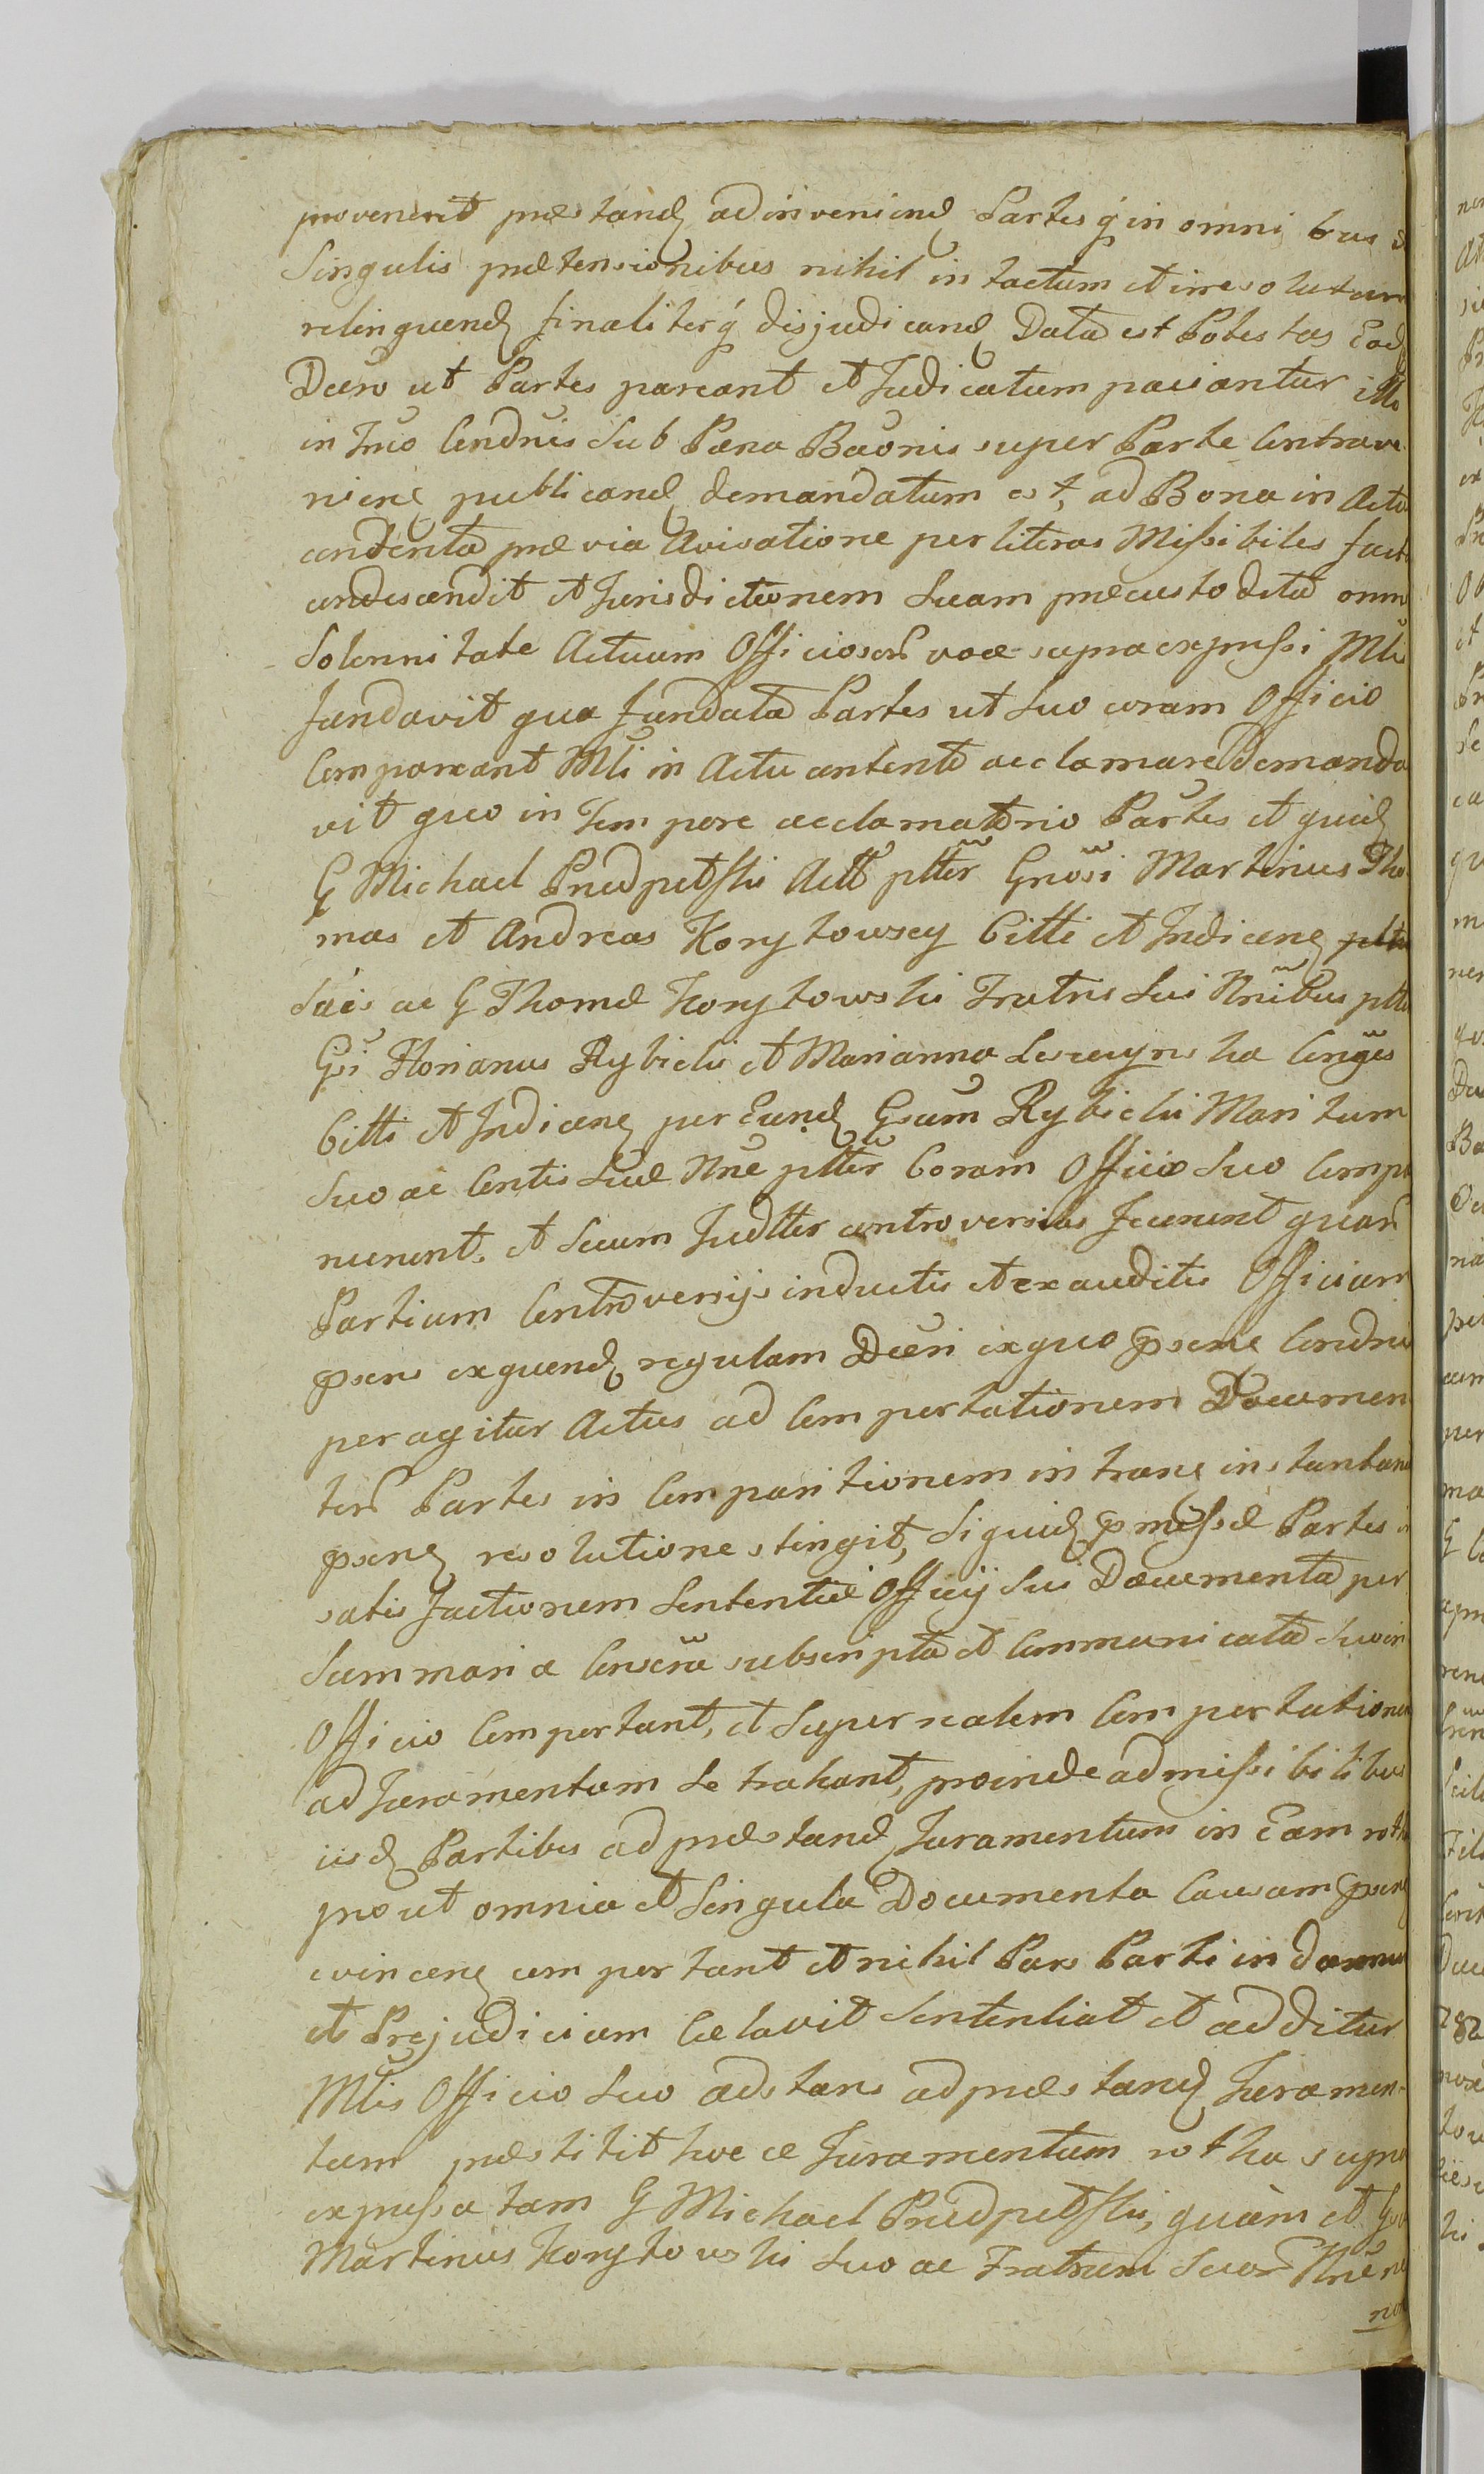 provenerit præstand adinveniend Partesq́ in omnibus
Singulis prætensionibus nihil intactum et irresolutum
relinquend finaliterq́ disjudicand Data est Potestas Eod
Decro ut Partes pareant et Judicatum patiantur illo
in Trco Condnis Sub Pæna Baonis super Parte Contrave
nienc publicand demandatum est, ad Bona in Actu
contenta prævia Avisatione per literas Missibiles fact
condescendit et Jurisdictionem Suam præcustodita omni
Solennitate Actuum Officiosor voce supra expressi Mlis
fundavit qua fundata Partes ut Suo coram Officio
Compareant Mli in Actu contento acclamare Demanda
vit quo in Tempore acclamatorio Partes et quid
G Michael Prædpełski Actt pltter Gnosi Martinus Tho
mas et Andreas Korytowscy Citti et Indicenc
Sais ac G Thomæ Korytowski Fratris Sui Nnibus pltr
Gsi Florianus Rybicki et Marianna Conges
Citti et Indicenc per Eund Gsum Rybicki Maritum
Suo ac Contis Suæ Nne pltter Coram Officio Suo Compa
ruerunt, et Secum Judtter controversias fecerunt quar
Partium Controversijs inductis et exauditis Officium
præns exquend regulam Decri ex quo præns Condnis
peragitur Actus ad Comportationem Documen
tor Partes in Comparitionem intranc instantanea
præns resolutione stingit, Siquid præmissæ Partes in
satisfactionem Sententiæ Officij Sui Documenta per
Summaria Conscra subscripta et Communicata Suo in
Officio Comportant, et Super realem Comportationem
ad Juramentum Se trahant, proinde admissibilibus
iisd Partibus ad præstand Juramentum in Eam rotha
prout omnia et Singula Documenta Causam præns
evincenc comportant et nihil Pars Parti in damnum
et Prejudicium Celavit Sententiat et additur
Mlis Officio Suo adstans ad præstand Juramen-
tum præstitit hocce Juramentum rotha supra
expressa tam G Michael Prædpełski, quàm et Gsus
Martinus Korytowski Suo ac Fratrum Suor Nne